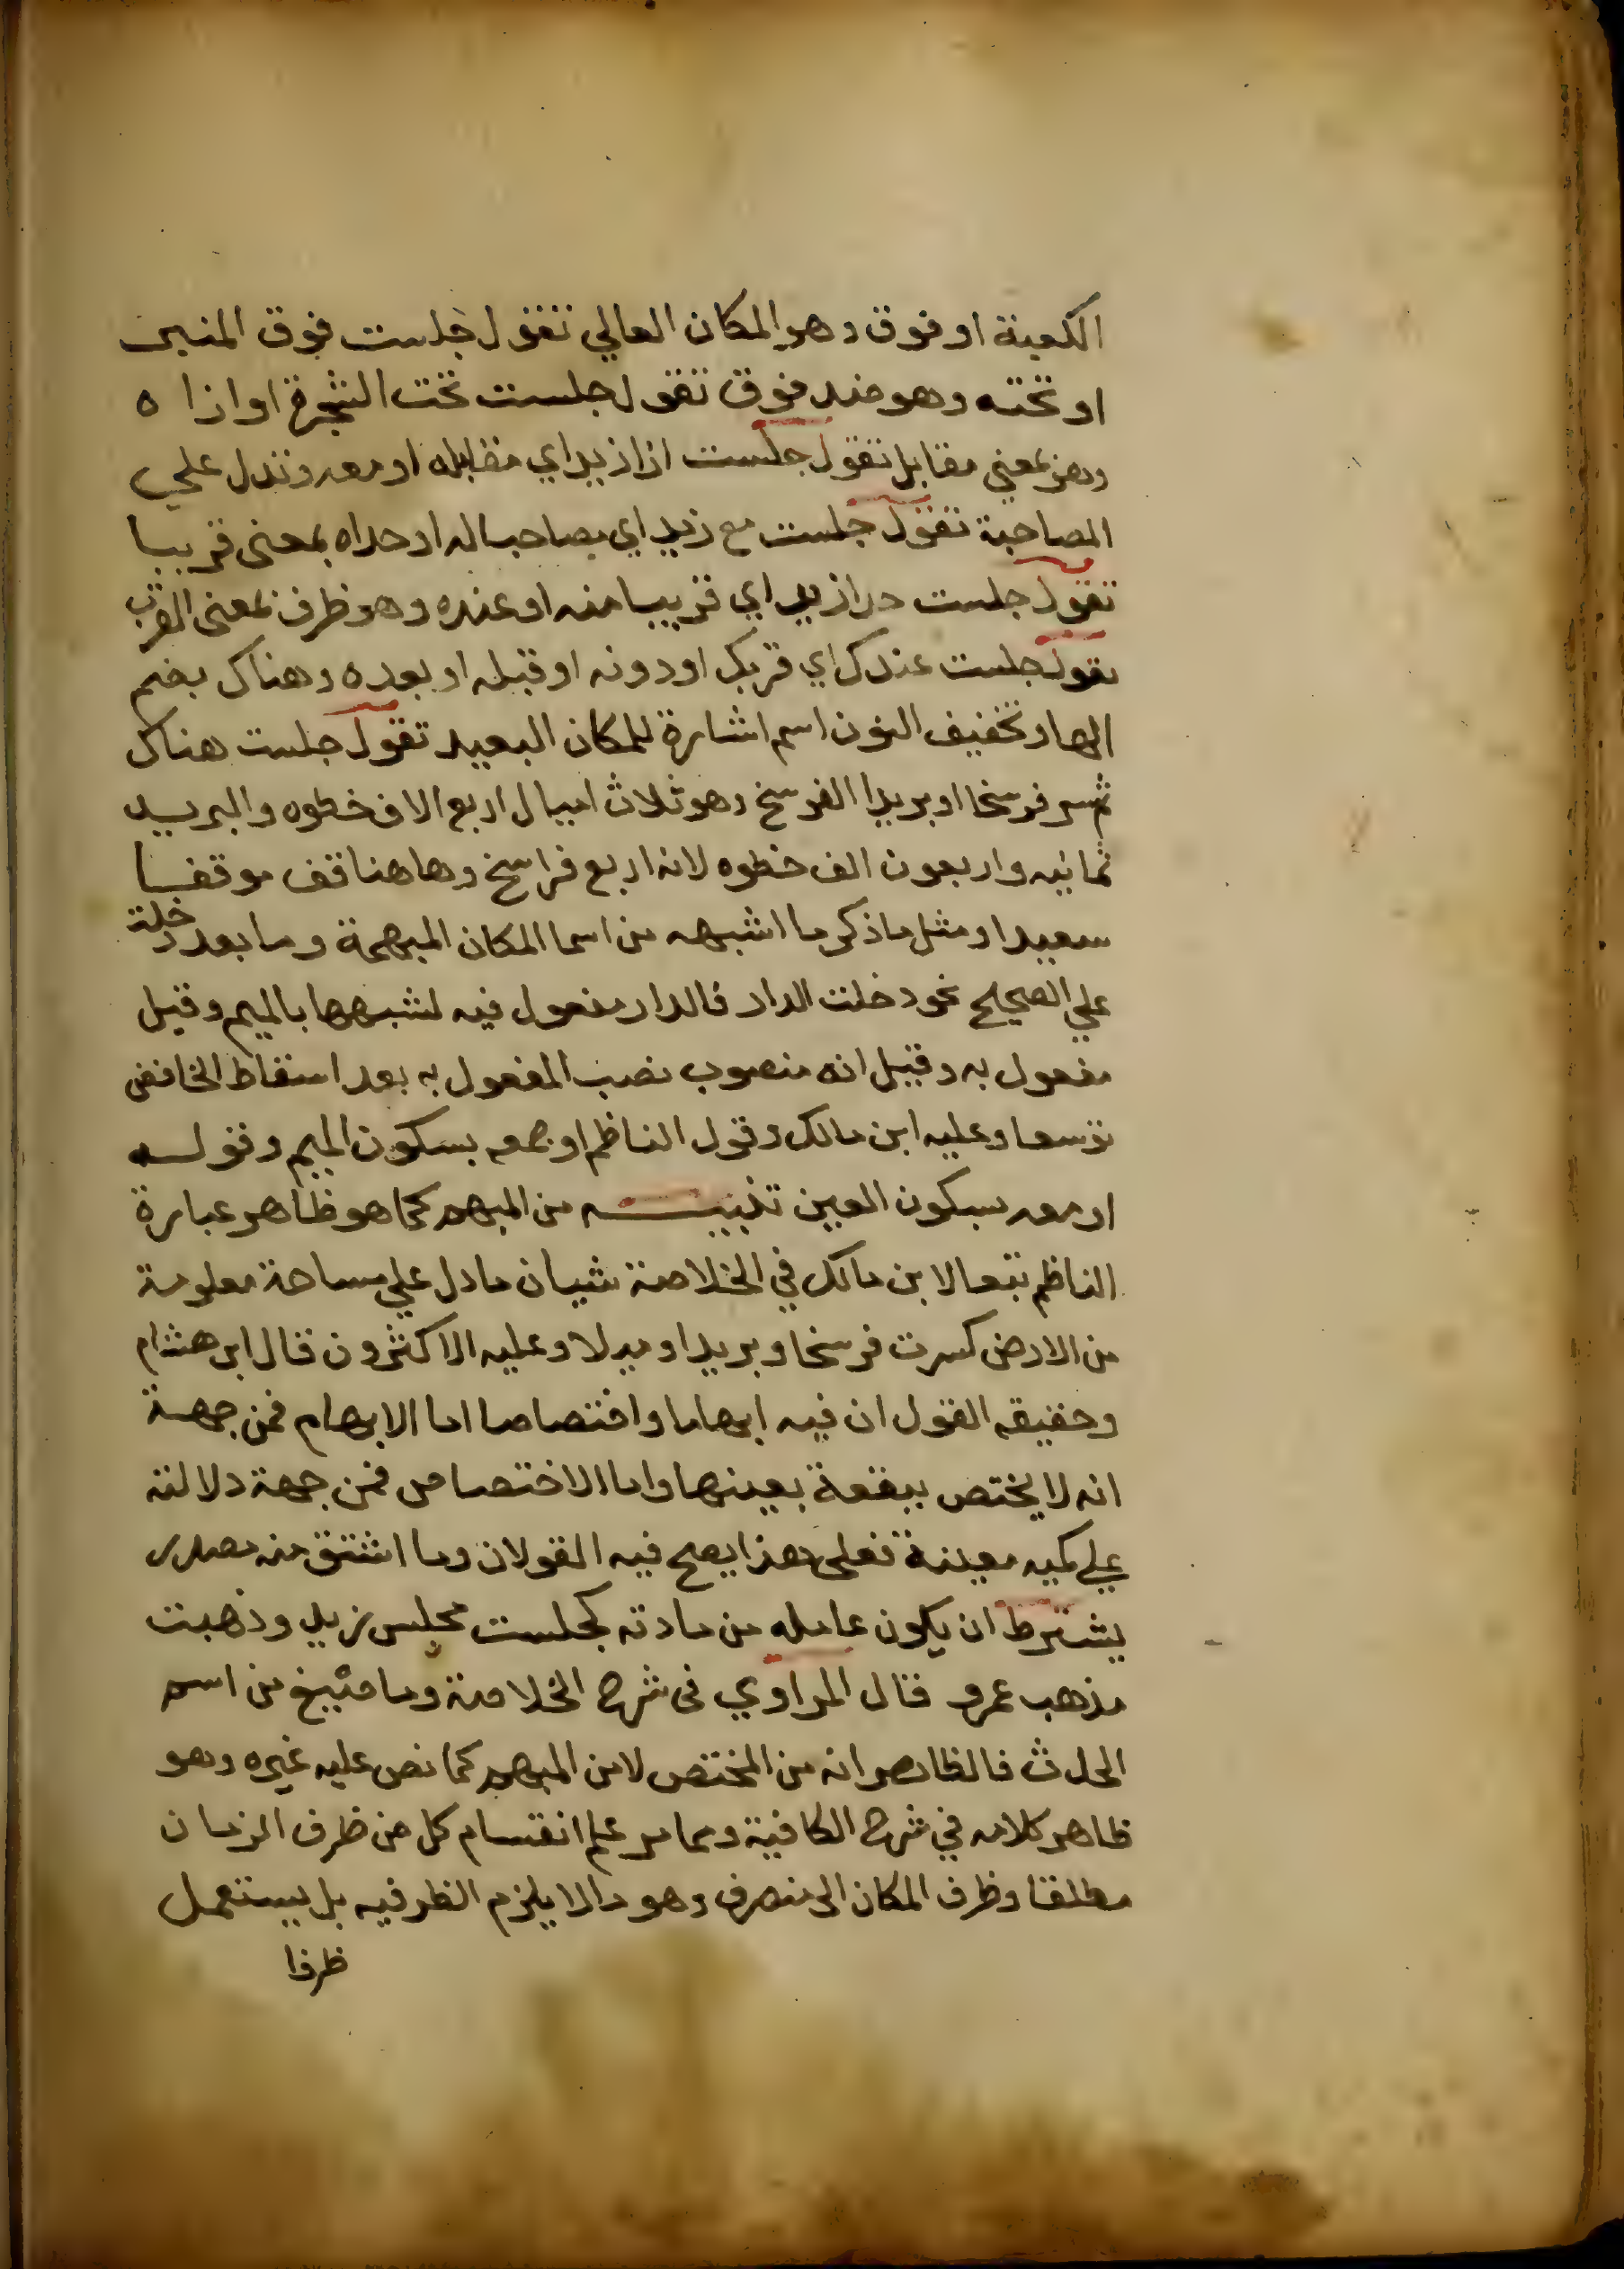 الكعبة او فوق وهو المكان العالي تقول جلست فوق المنبر
او تحته وهو ضد فوق تقول جلست تحت الشجرة او ازاه
وهو بمعني مقابل تقول جلست ازا زيد اي مقابله او معه وتدل علي
المصاحبة تقول جلست مع زيد اي مصاحبا له او حداه بمعنى قريبا
تقول جلست حدا زيد اي قريبا منه او عنده وهو ظرف بمعنى القرب
تقول جلست عندك اي قربك او دونه او قبله او بعده وهناك بضم
الها وتخفيف النون اسم اشارة للمكان البعيد تقول جلست هناك
ثم سر فرسخا او بريدا الفرسخ وهو ثلاث اميال اربع الاف خطوه والبريد
ثمانيه واربعون الف خطوه لانه اربع فراسخ وهاهنا قف موقفا
سعيدا ومثل ما ذكر ما اشبهه من اسما المكان المبهمة وما بعد دخلت
علي الصحيح نحو دخلت الدار فالدار مفعول فيه لشبهها بالمبهم وقيل
مفعول به وقيل انه منصوب نصب المفعول به بعد اسقاط الخافض
توسعا وعليه ابن مالك وقول الناظم او جمعه بسكون الميم وقوله
او معه بسكون العين تنبيه من المبهم كما هو ظاهر عبارة
الناظم تبعا لابن مالك في الخلاصة شيان ما دل علي مساحة معلومة
من الارض كسرت فرسخا وبريدا وميلا وعليه الاكثرون قال ابن هشام
وحقيقه القول ان فيه ابهاما واختصاصا اما الابهام فمن جهة
انه لا يختص ببقعة بعينها واما الاختصاص فمن جهة دلالته
علي كميه معينة فعلى هذا يصح فيه القولان وما اشتق منه مصدر
يشترط ان يكون عامله من مادته كجلست مجلس زيد وذهبت
مذهب عمرو قال المرادي في شرح الخلاصة وما صيغ من اسم
الحدث فالظاهر انه من المختص لا من المبهم كما نص عليه غيره وهو
ظاهر كلامه في شرح الكافية ومما مر علم انقسام كل من ظرف الزمان
مطلقا وظرف المكان الى متصرف وهو مالا يلزم الظرفيه بل يستعمل
ظرفا